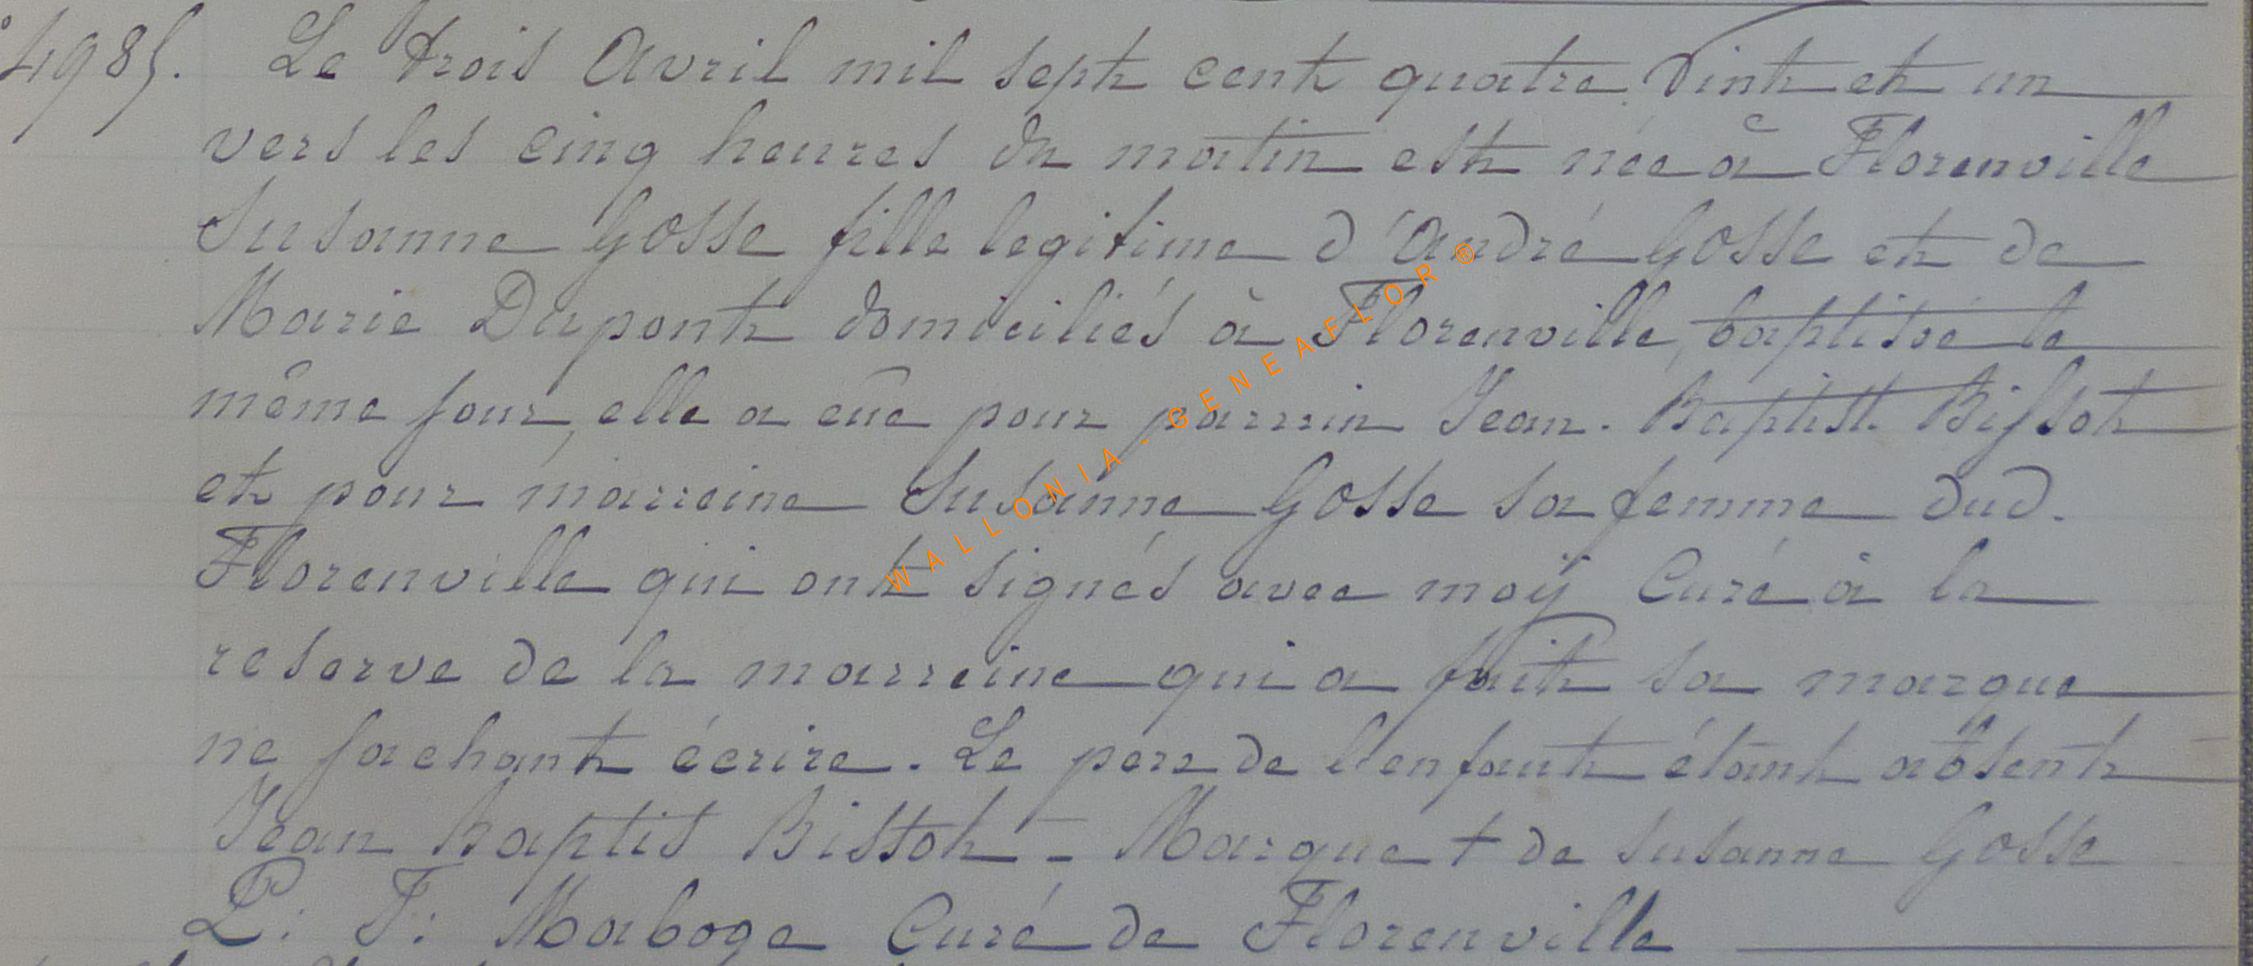 4985. Le trois Avril mil sept cent quatre Vint et un
vers les cinq heures du matin est née à Florenville
Susanne Gosse fille legitime d'André Gosse et de
Marie Dupont domiciliés à Florenville, baptisée le
même jour, elle a eüe pour parrin Jean-Baptist. Bissot
et pour marreine Susanne Gosse sa femme dud.
Florenville qui ont signés avec moÿ Curé à la
reserve de la marreine qui a fait sa marque
ne sachant écrire. Le pere de l'enfant étant absent
Jean Baptis Bissot - Marque + de Susanne Gosse
P: F: Maboge Curé de Florenville
WALLONIA-GENEAFLOR®